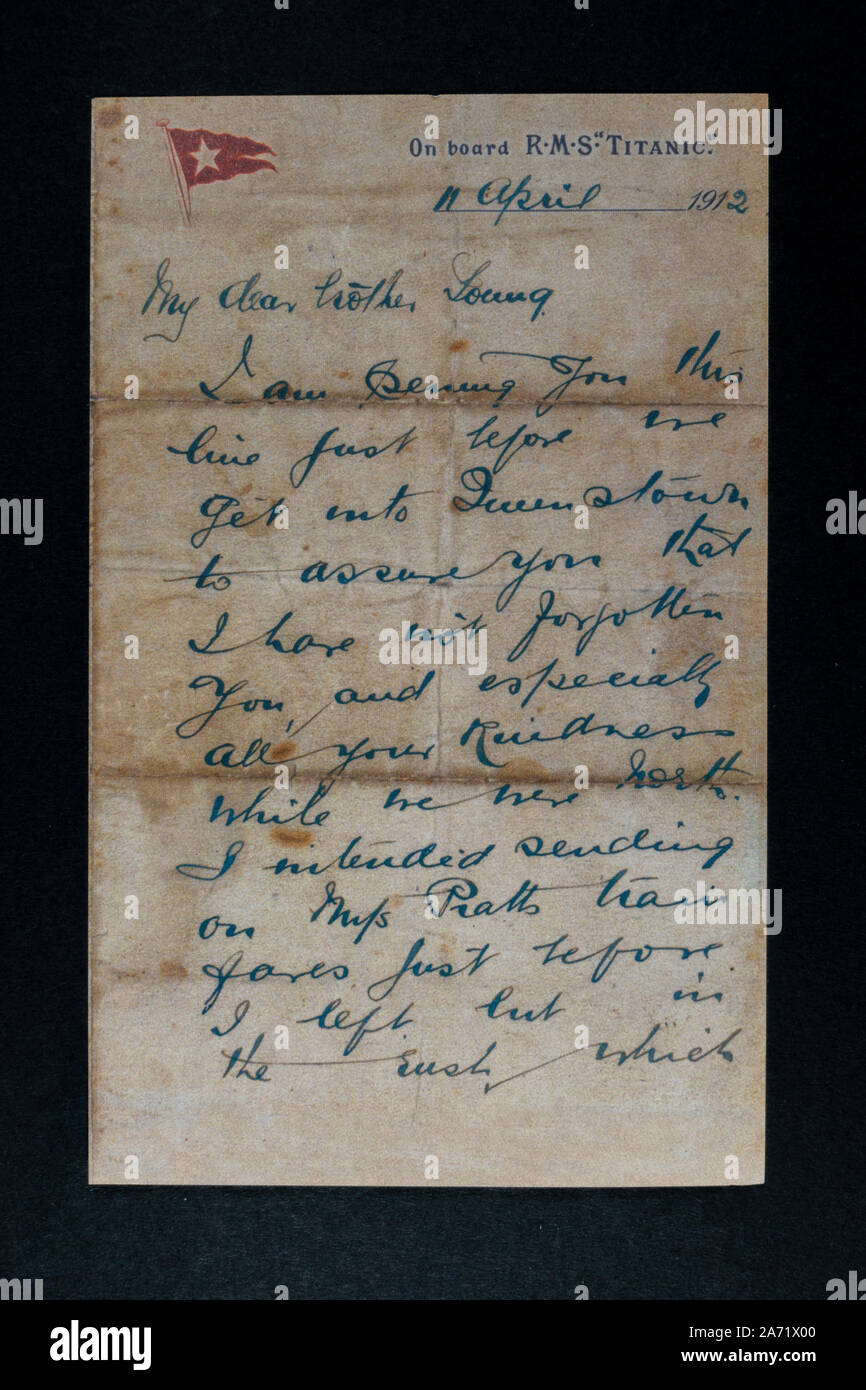 On board R·M·S·"TITANIC."
11 April 1912
My dear brother Young.
I am sening you this
line just before we
get into Queenstown
to assure you that
I have not forgotten
you, and especially
all your kindness
while we were North.
I intended sending
on Miss Pratts train
fares just before
I left but in
the rush, which
alamy
Image ID: 2A71X00
www.alamy.com